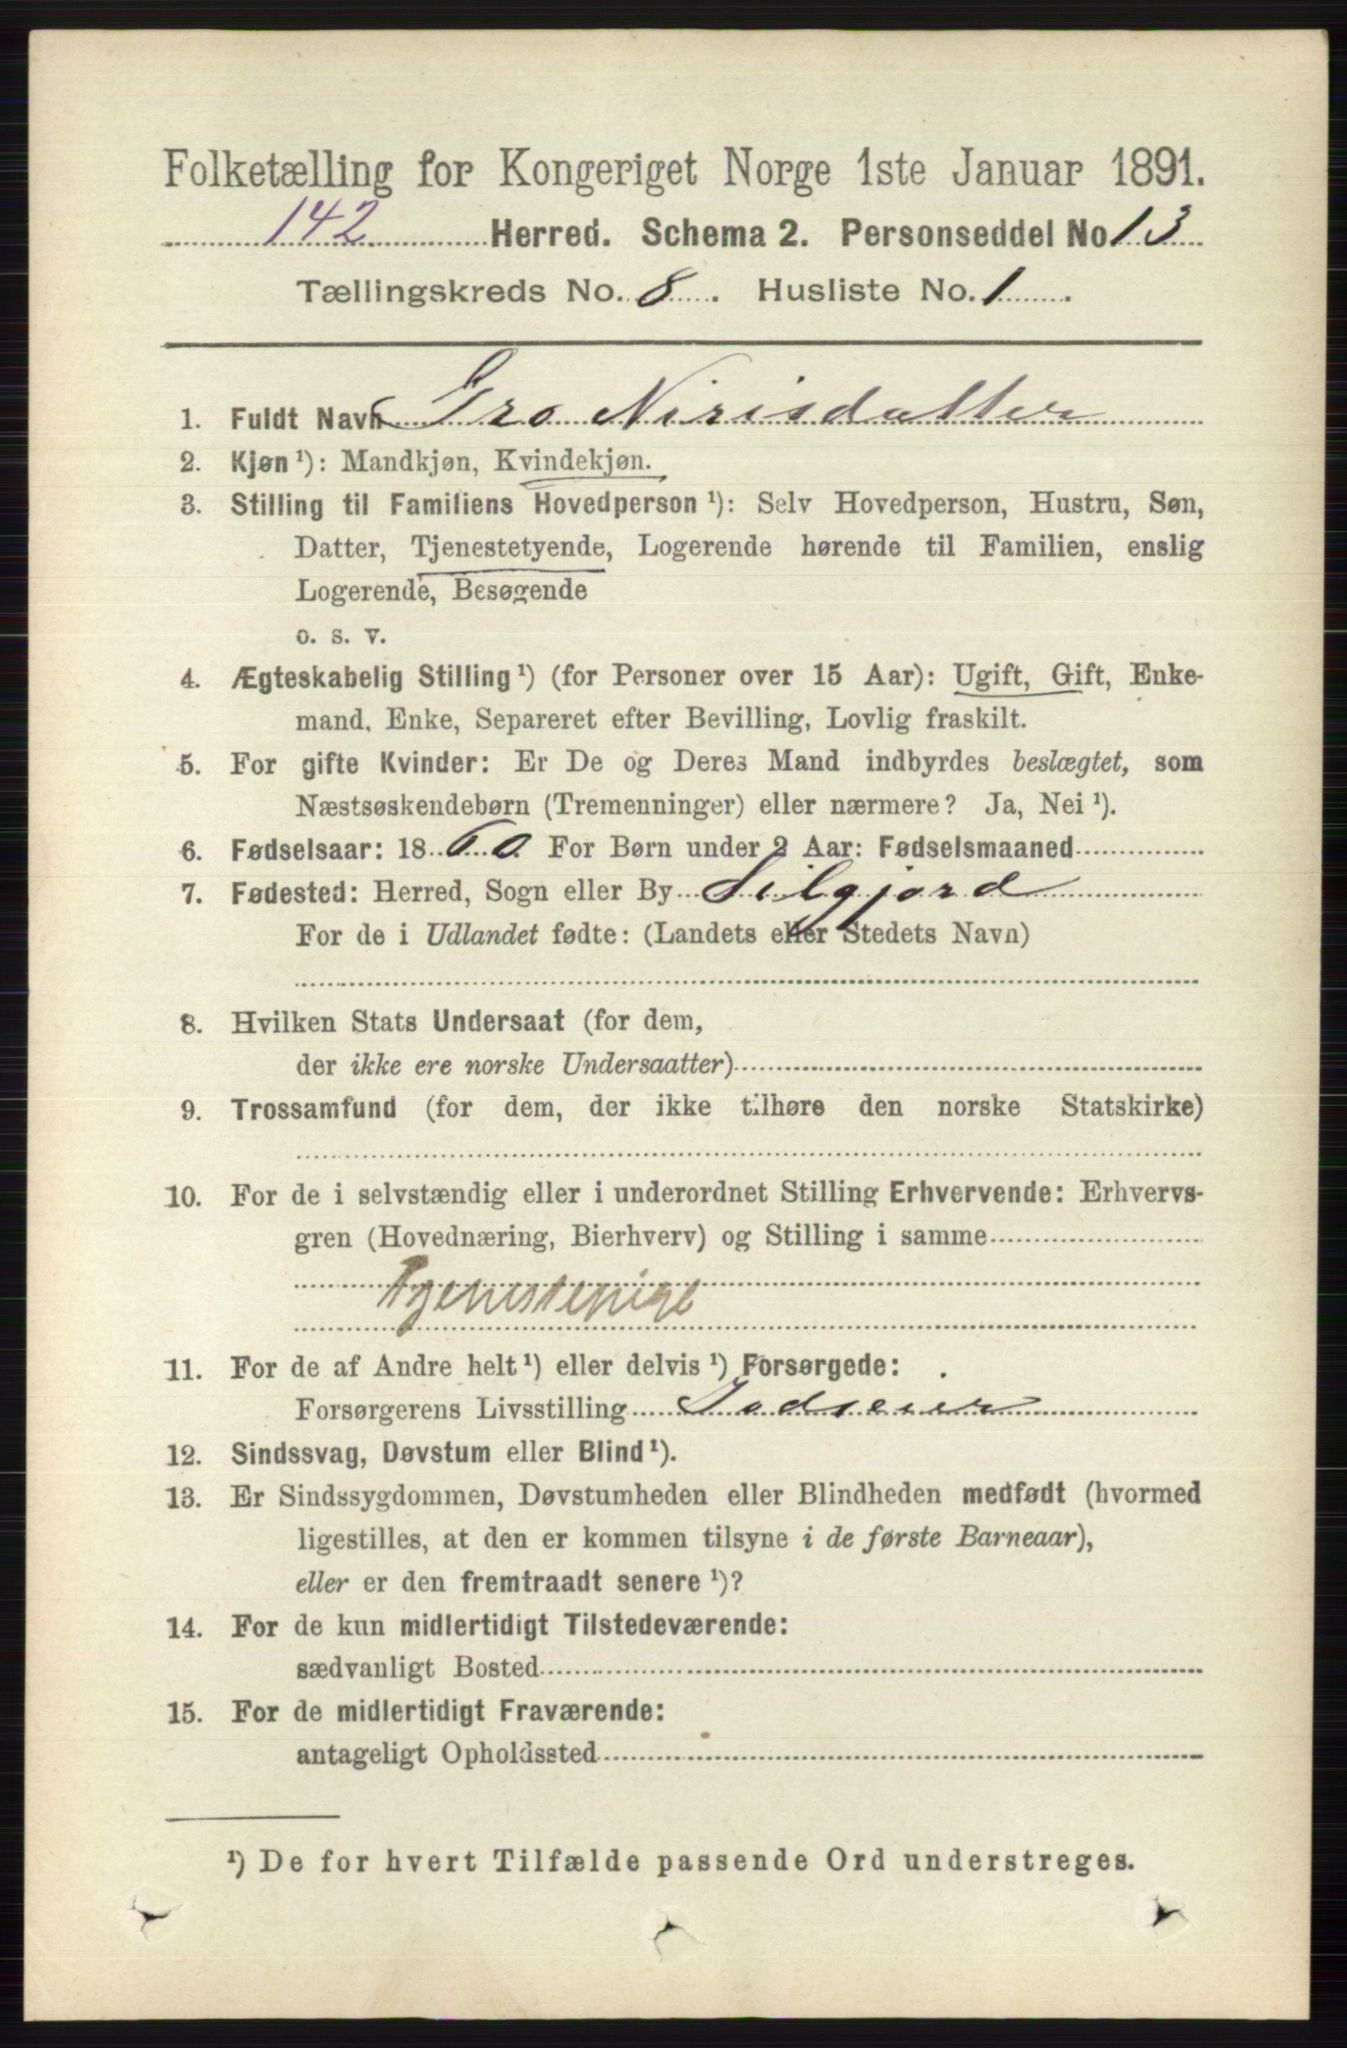 Folketælling for Kongeriget Norge 1ste Januar 1891.
142 Herred. Schema 2. Personseddel No 13
Tællingskreds No. 8. Husliste No. 1.
1. Fuldt Navn Gro Nirisdatter
2. Kjøn ¹): Mandkjøn, Kvindekjøn.
3. Stilling til Familiens Hovedperson ¹): Selv Hovedperson, Hustru, Søn,
Datter, Tjenestetyende, Logerende hørende til Familien, enslig
Logerende, Besøgende
o. s. v.
4. Ægteskabelig Stilling ¹) (for Personer over 15 Aar): Ugift, Gift, Enke-
mand, Enke, Separeret efter Bevilling, Lovlig fraskilt.
5. For gifte Kvinder: Er De og Deres Mand indbyrdes beslægtet, som
Næstsøskendebørn (Tremenninger) eller nærmere? Ja, Nei ¹).
6. Fødselsaar: 1860 For Børn under 2 Aar: Fødselsmaaned
7. Fødested: Herred, Sogn eller By Silgjord
For de i Udlandet fødte: (Landets eller Stedets Navn)
8. Hvilken Stats Undersaat (for dem,
der ikke ere norske Undersaatter)
9. Trossamfund (for dem, der ikke tilhøre den norske Statskirke)
10. For de i selvstændig eller i underordnet Stilling Erhvervende: Erhvervs-
gren (Hovednæring, Bierhverv) og Stilling i samme
Tjenestepige
11. For de af Andre helt ¹) eller delvis ¹) Forsørgede:
Forsørgerens Livsstilling
12. Sindssvag, Døvstum eller Blind ¹).
13. Er Sindssygdommen, Døvstumheden eller Blindheden medfødt (hvormed
ligestilles, at den er kommen tilsyne i de første Barneaar),
eller er den fremtraadt senere ¹)?
14. For de kun midlertidigt Tilstedeværende:
sædvanligt Bosted
15. For de midlertidigt Fraværende:
antageligt Opholdssted
¹) De for hvert Tilfælde passende Ord understreges.